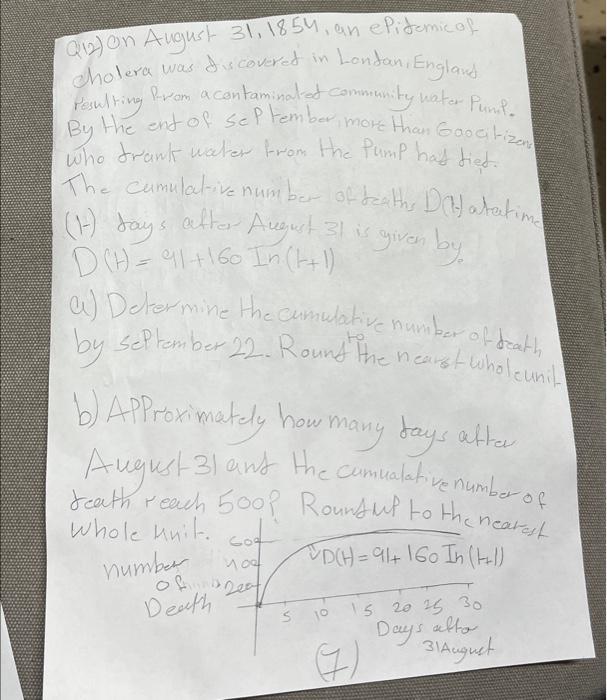 Q12) On August 31, 1854, an ePidemic of
cholera was discovered in London, England
resulting from a contaminated community water Pump.
By the end of sePtember, more than 600 citizens
who drank water from the Pump had died.
The cumulative number of deaths D(t) at a time
(t) days after August 31 is given by.
D(t) = 91 + 160 In (t+1)
a) Determine the cumulative number of death
by sePtember 22. Round to the nearst whole unit
b) APProximately how many days after
August 31 and the cumualative number of
death reach 500? Round uP to the nearest
whole unit.
number of Death
600
400
200
D(t) = 91 + 160 In (t+1)
5 10 15 20 25 30
Days after
31 August
(7)